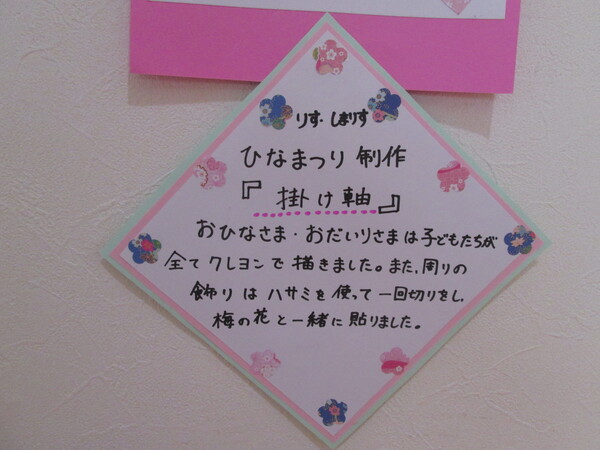 りす・しまりす
ひなまつり 制作
『掛け軸』
おひなさま・おだいりさまは子どもたちが
全てクレヨンで描きました。また、周りの
飾りはハサミを使って一回切りをし、
梅の花と一緒に貼りました。